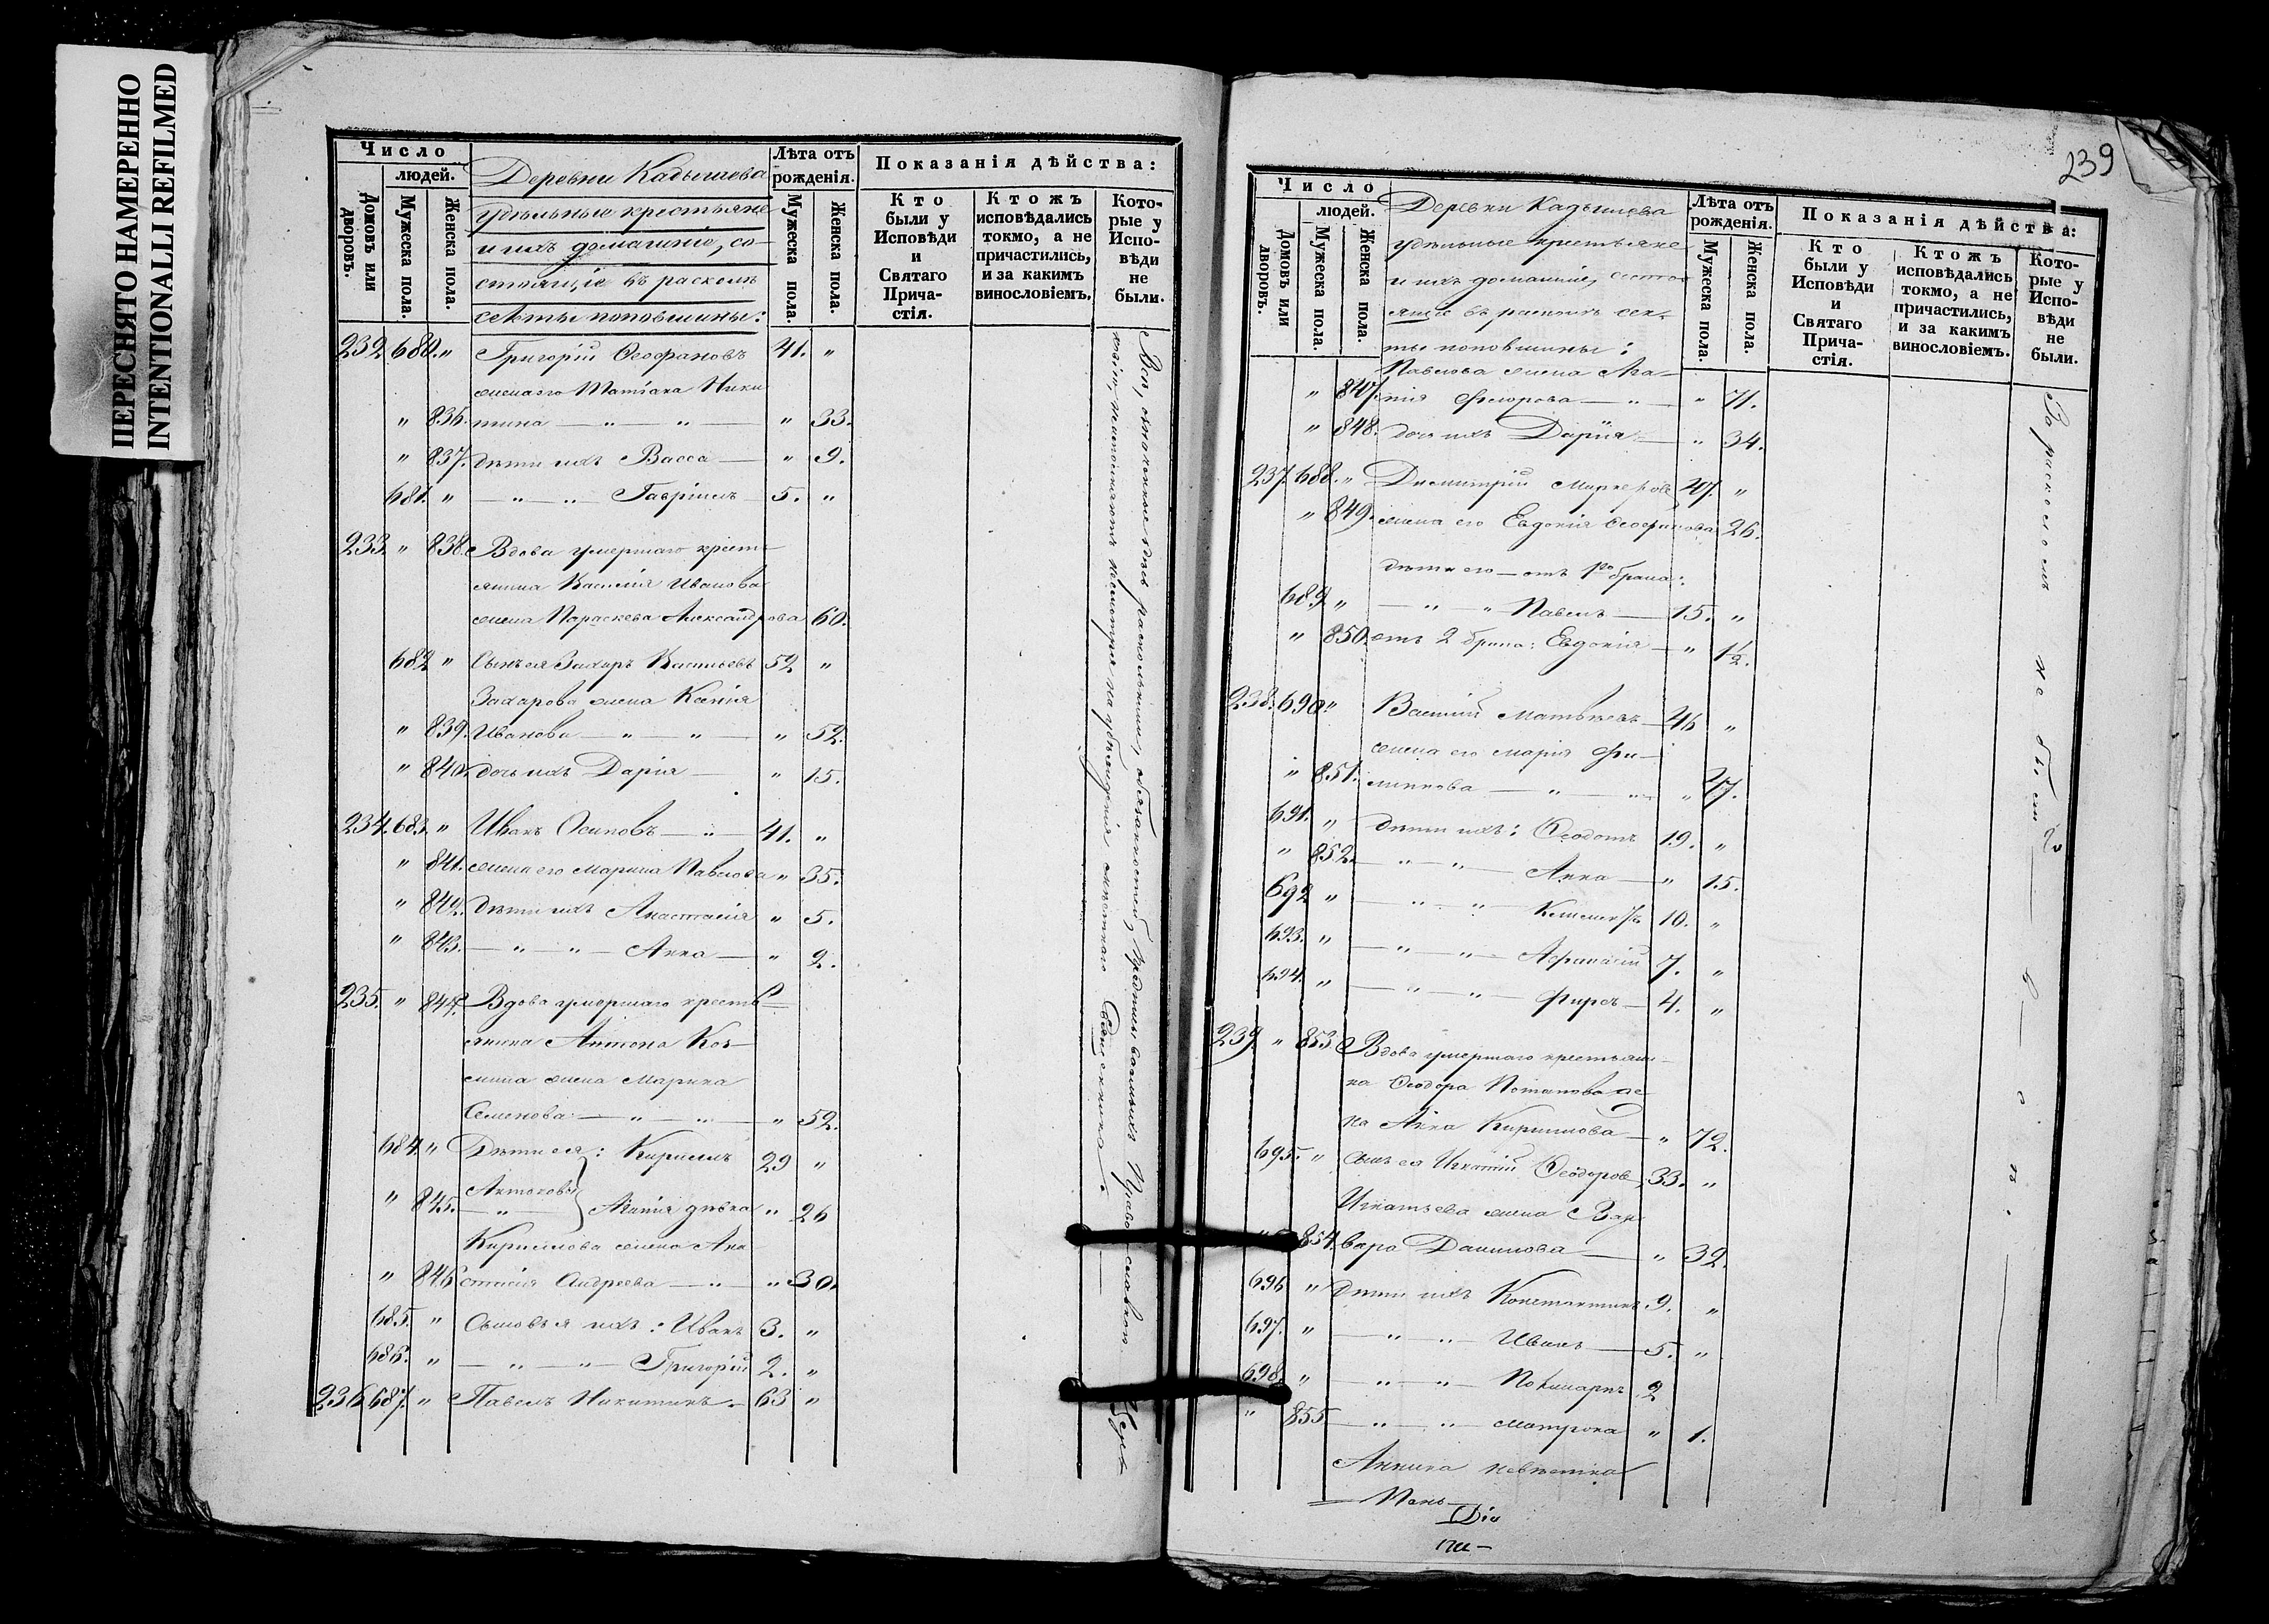 ПЕРЕСНЯТО НАМЕРЕННО
INTENTIONALLI REFILMED
Число
людей.
Домовъ или дворовъ.
Мужеска пола.
Женска пола.
Деревни Кадышева
удѣльные крестьяне
и ихъ домашніе, со-
стоящіе въ расколѣ
секты поповщины:
Лѣта отъ рожденія.
Мужеска пола.
Женска пола.
Показанія дѣйства:
Кто были у Исповѣди и Святаго Прича-стія.
Ктожъ исповѣдались токмо, а не причастились, и за какимъ винословіемъ.
Кото-рые у Испо-вѣди не были.
232 680. " Григорій Ѳеофановъ 41. "
жена его Татіана Ники
" 836. тина — " — " — " 33.
" 837. дѣти ихъ Васса — " 9.
681. " — " — " Гавріилъ 5. "
233. " 838. Вдова умершаго кресть
янина Василія Иванова
жена Параскева Александрова 60.
682 " Сынъ ея Захаръ Васильевъ 52 "
Захарова жена Ксенія
" 839. Иванова — " — " — " 52.
" 840. дочь ихъ Дарія — " 15.
234. 683. " Иванъ Осиповъ — " — 41. "
" 841. жена его Марина Павлова " 35.
" 842. дѣти ихъ Анастасія " 5.
" 843. — " — " — Анна — " 2.
235. " 844. Вдова умершаго кресть
янина Антона Коз-
мина жена Марина
Семенова — " — " — " 52.
684. " Дѣти ея: Кирилъ 29 "
Антоновы
" 845. — " — дѣвка " 26
Кирилова жена Ана
" 846 стасія Андреева — " — " 30.
685. " Сыновья ихъ: Иванъ 3. "
686. " — " — " — Григорій 2. "
236 687. " Павелъ Никитинъ — 63 "
Всѣ, означенные здѣсь раскольники, обязанностей, предписываемыхъ Православною Церк
овію, не исполняютъ не смотря на убѣжденія мѣстнаго Священника.
239
Число
людей.
Домовъ или дворовъ.
Мужеска пола.
Женска пола.
Деревни Кадышева
удѣльные крестьяне
и ихъ домашніе, состо
ящіе въ расколѣ сек-
ты поповщины:
Лѣта отъ рожденія.
Мужеска пола.
Женска пола.
Показанія дѣйства:
Кто были у Исповѣди и Святаго Прича-стія.
Ктожъ исповѣдались токмо, а не причастились, и за какимъ винословіемъ.
Кото-рые у Испо-вѣди не были.
Павлова жена Ага-
" 847. пія — " — " 71.
" 848. дочь ихъ Дарія — " 34.
237. 688. " Димитрій 47. "
" 849. жена его Евдокія Ѳеофанова 26.
дѣти его — отъ 1го брака:
689 " — " — " Павелъ — 15. "
" 850. отъ 2 брака: Евдокія — " 1½.
238. 690. " Василій Матвѣевъ — 46 "
жена его Марія Фи-
" 851. липпова — " — " — " 47.
691. " дѣти ихъ: Ѳеодотъ 19. "
" 852. — " — Анна — " 15.
692 " — " — " — 10. "
693. " — " — " — Афанасій 7. "
694. " — " — " — Фирсъ — 4. "
239. " 853 Вдова умершаго крестьяни-
на Ѳеодора Потапова же
на Анна Кирилова — " 72.
695. " сынъ ея Игнатій Ѳеодоров 33. "
Игнатьева жена Вар
" 854. вара Данилова — " 32.
696 " дѣти ихъ Константинъ 9. "
697. " — " — " — Иванъ — 5. "
698. " — " — " — Поликарпъ 2
" 855 — " — " — Матрона " 1.
Аннина невѣстка
Въ расколомъ не былъ